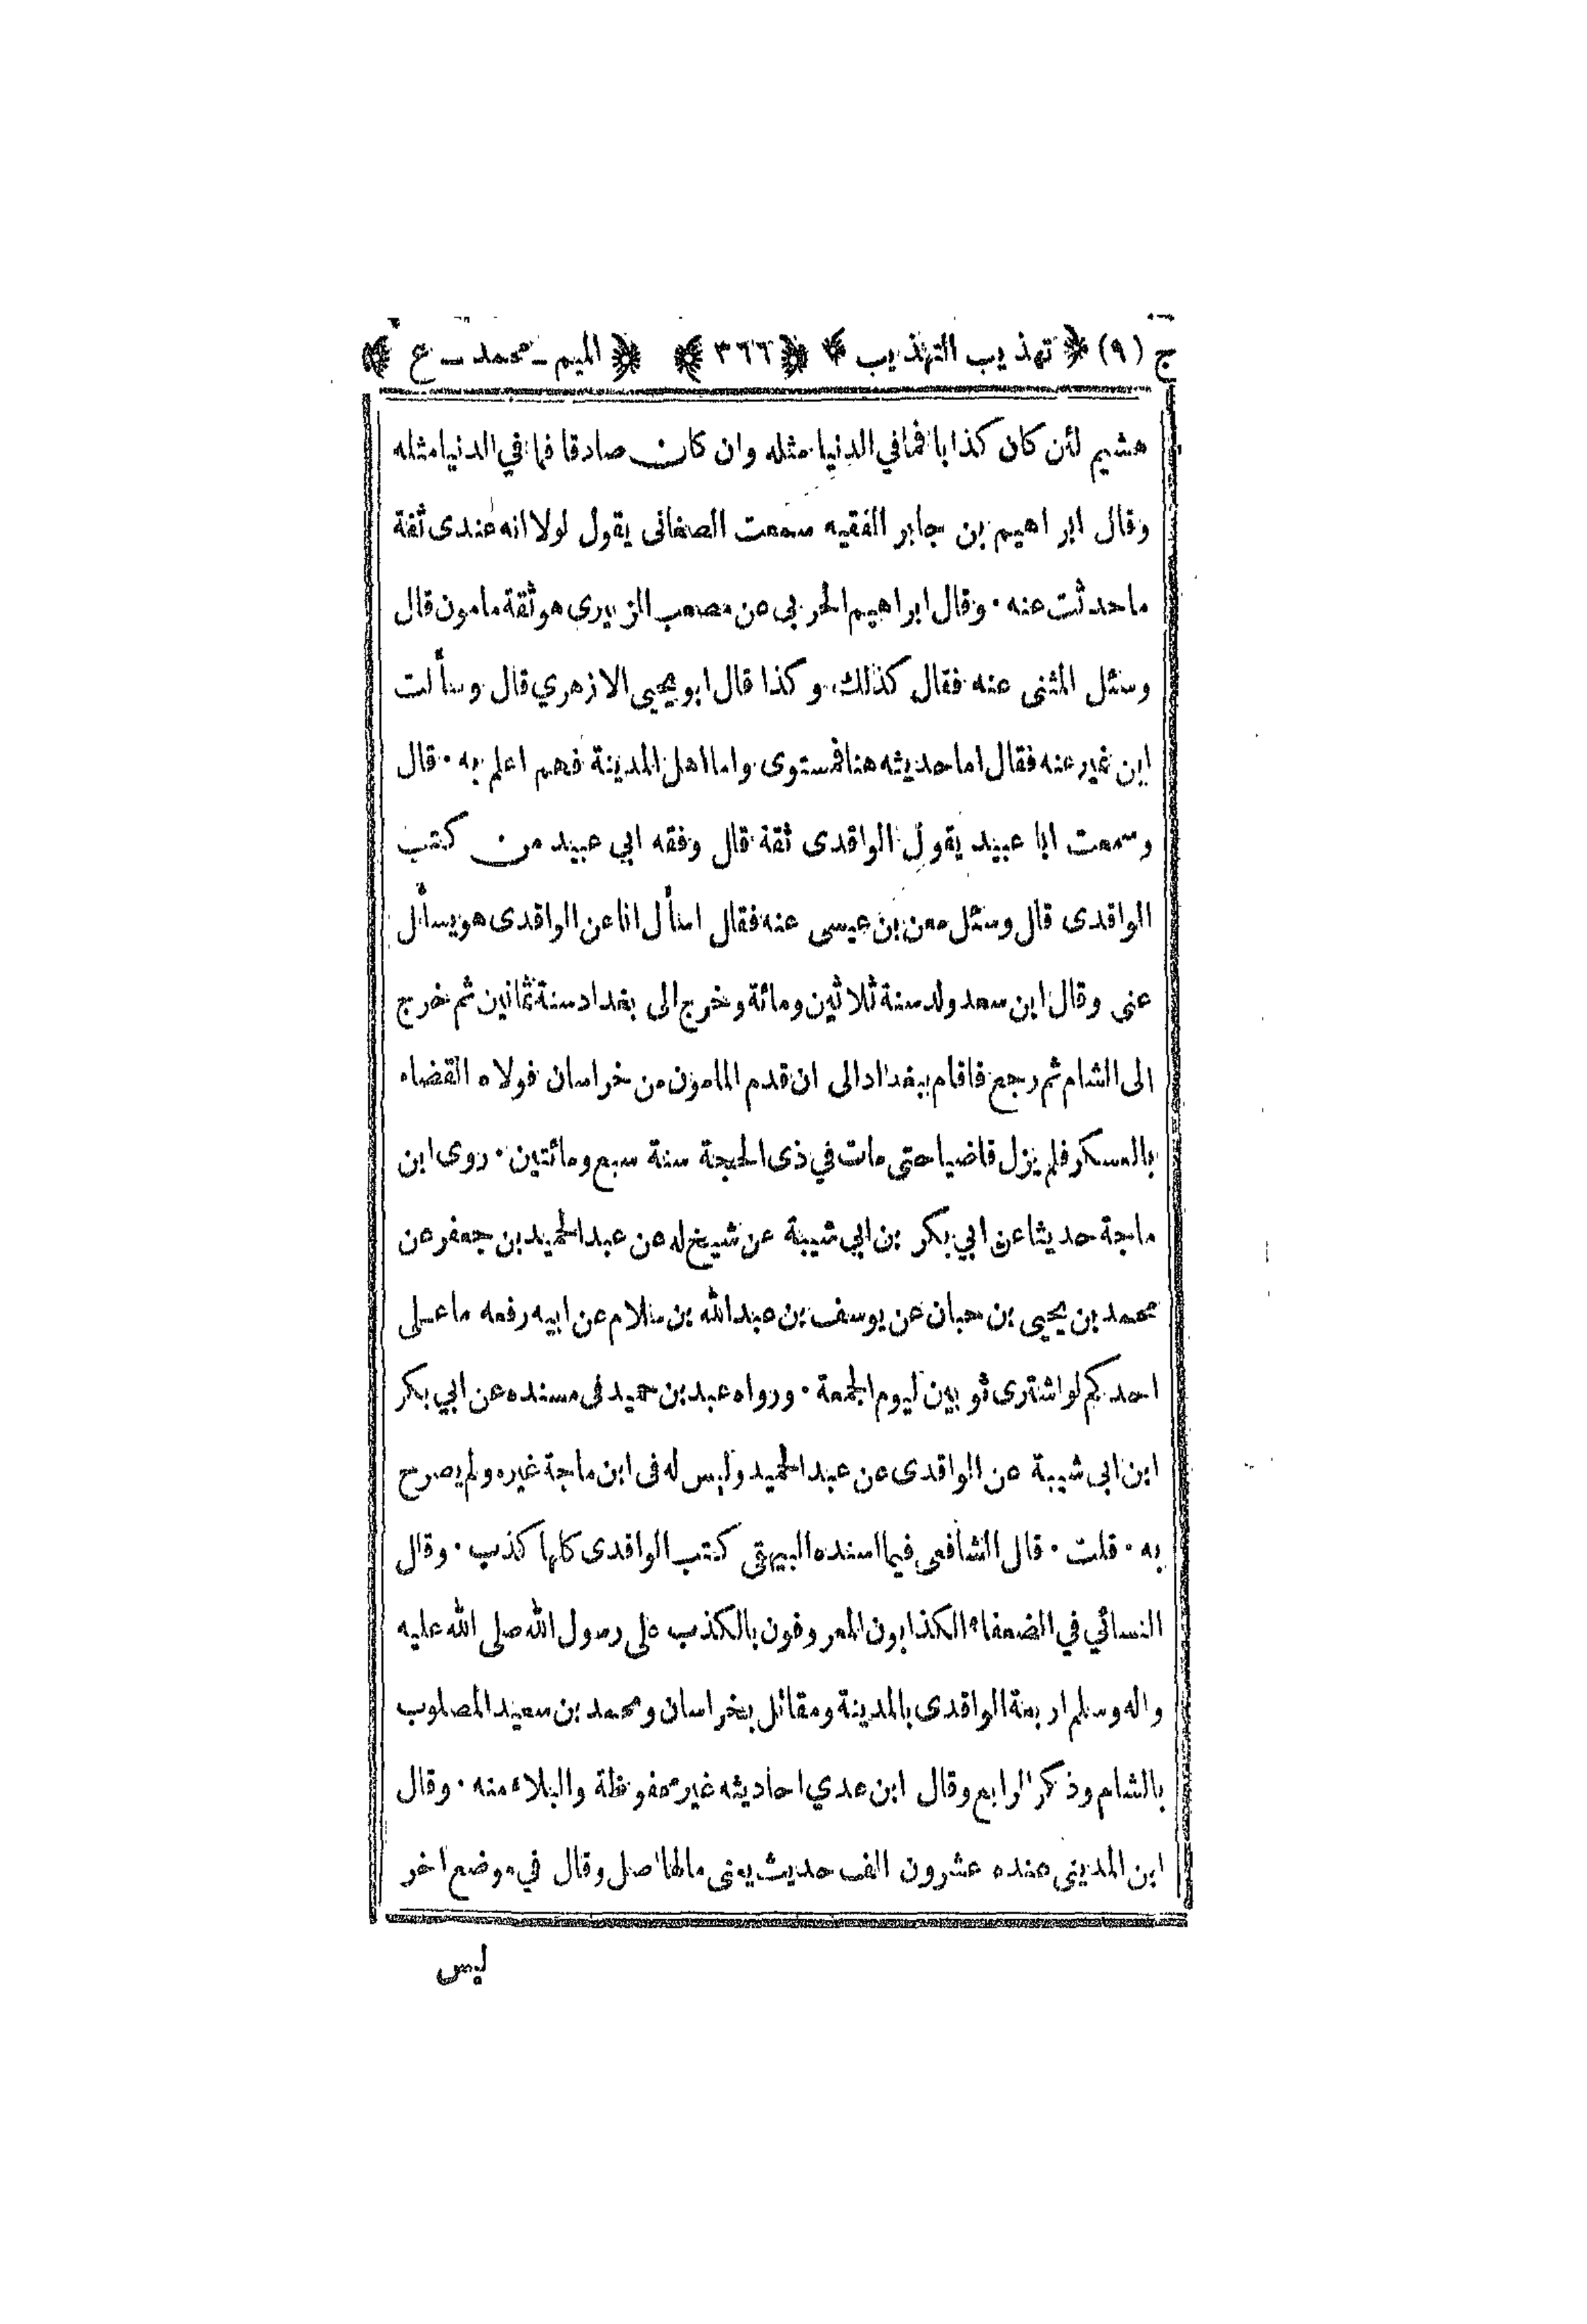 ج (٩) ﴿ تهذيب التهذيب ﴾ ﴿ ٣٦٦ ﴾ ﴿ الميم - محمد - ع ﴾
هشيم لئن كان كذابا فمافي الدنيا مثله وان كان صادقا فما في الدنيا مثله
وقال ابراهيم بن جابر الفقيه سمعت الصغانى يقول لولا انه عندى ثقة
ما حدثت عنه . وقال ابراهيم الحربى عن مصعب الزبيرى هو ثقة مامون قال
وسئل المثنى عنه فقال كذلك وكذا قال ابو يحيى الازهري قال وسألت
ابن نمير عنه فقال اما حديثه هنا فمستوى واما اهل المدينة فهم اعلم به . قال
وسمعت ابا عبيد يقول الواقدى ثقة قال وفقه ابي عبيد من كتب
الواقدى قال وسئل معن بن عيسى عنه فقال اسأل انا عن الواقدى هو يسأل
عنى وقال ابن سعد ولد سنة ثلاثين ومائة وخرج الى بغداد سنة ثمانين ثم خرج
الى الشام ثم رجع فاقام ببغداد الى ان قدم المامون من خراسان فولاه القضاء
بالعسكر فلم يزل قاضيا حتى مات في ذى الحجة سنة سبع ومائتين . روى ابن
ماجة حديثا عن ابي بكر بن ابي شيبة عن شيخ له عن عبد الحميد بن جعفر عن
محمد بن يحيى بن حبان عن يوسف بن عبد الله بن سلام عن ابيه رفعه ما على
احدكم لو اشترى ثوبين ليوم الجمعة . ورواه عبد بن حميد فى مسنده عن ابي بكر
ابن ابى شيبة عن الواقدى عن عبد الحميد وليس له فى ابن ماجة غيره ولم يصرح
به . قلت . قال الشافعى فيما اسنده البيهقى كتب الواقدى كلها كذب . وقال
النسائي في الضعفاء الكذابون المعروفون بالكذب على رسول الله صلى الله عليه
واله وسلم اربعة الواقدى بالمدينة ومقاتل بخراسان ومحمد بن سعيد المصلوب
بالشام وذكر الرابع وقال ابن عدي احاديثه غير محفوظة والبلاء منه . وقال
ابن المدينى عنده عشرون الف حديث يعنى مالها اصل وقال في موضع آخر
ليس